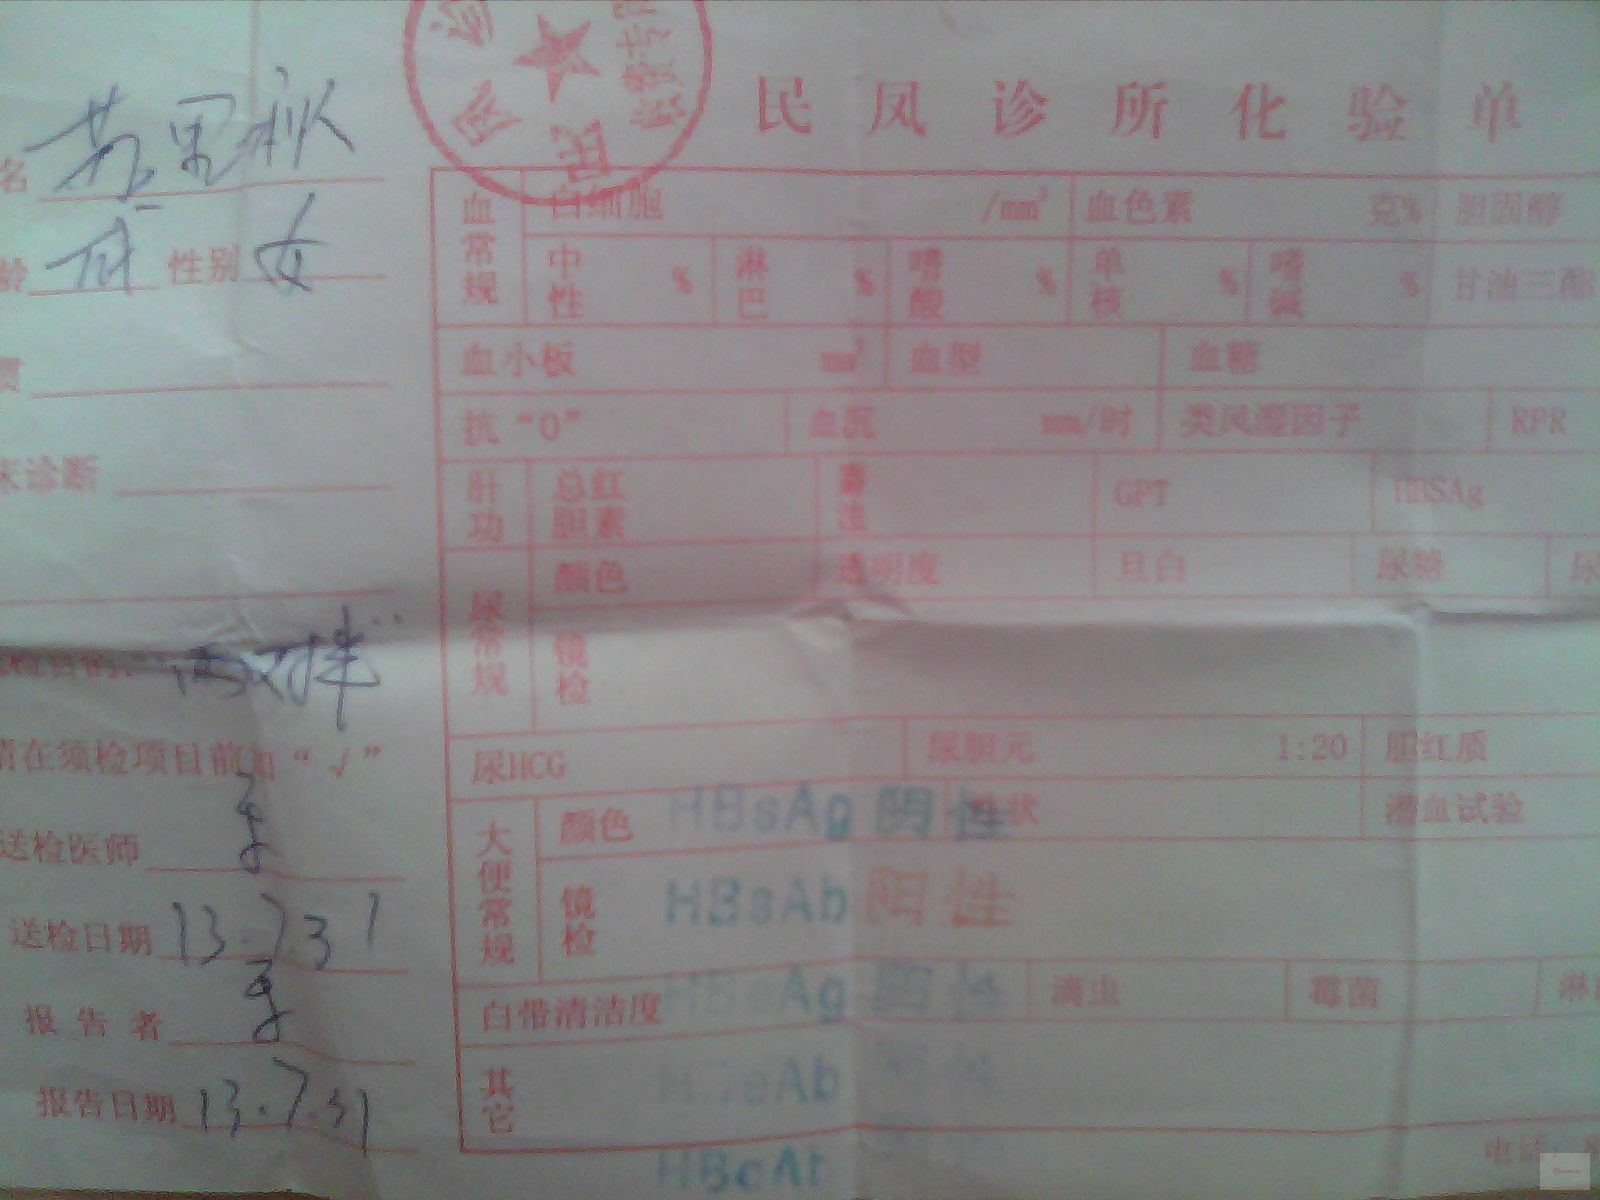 民凤诊所化验单
名
龄 成 性别 女
费
床诊断
请在须检项目前加“√”
送检医师
送检日期 13.7.31
报告者
报告日期 13.7.31
血常规 白细胞 /mm³ 血色素 克% 胆固醇
中性 % 淋巴 % 嗜酸 % 单核 % 嗜碱 % 甘油三酯
血小板 mm³ 血型 血糖
抗“O” 血沉 mm/时 类风湿因子 RPR
肝功 总红胆素 GPT HBSAg
尿常规 颜色 透明度 旦白 尿糖 尿
镜检
尿HCG 尿胆元 1:20 胆红质
大便常规 颜色 性状 潜血试验
HBsAg 阴性
镜检
HBsAb 阳性
白带清洁度 滴虫 霉菌 淋
HBeAg 阴性
其它
HBeAb 阴性
HBcAb
电话: